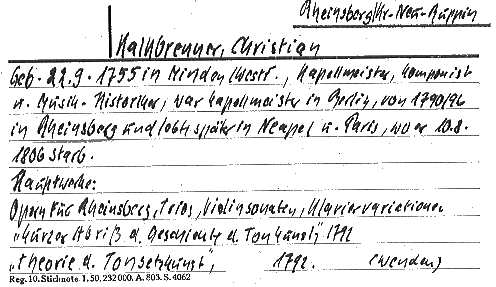 Rheinsberg/Kr. Neu-Ruppin
Kalkbrenner, Christian
Geb. 22.9.1755 in Minden/Westf., Kapellmeister, Komponist
u. Musik-Historiker, war Kapellmeister in Berlin, von 1790/96
in Rheinsberg und lebte später in Neapel u. Paris, wo er 10.8.
1806 starb.
Hauptwerke:
Opern für Rheinsberg, Trios, Violinsonaten, Klaviervariationen
"Kurzer Abriß d. Geschichte d. Tonkunst," 1792
"Theorie d. Tonsetzkunst", 1792. (wenden)
Reg. 10. Stichnote. 1. 50. 232 000. A. 803. S. 4062